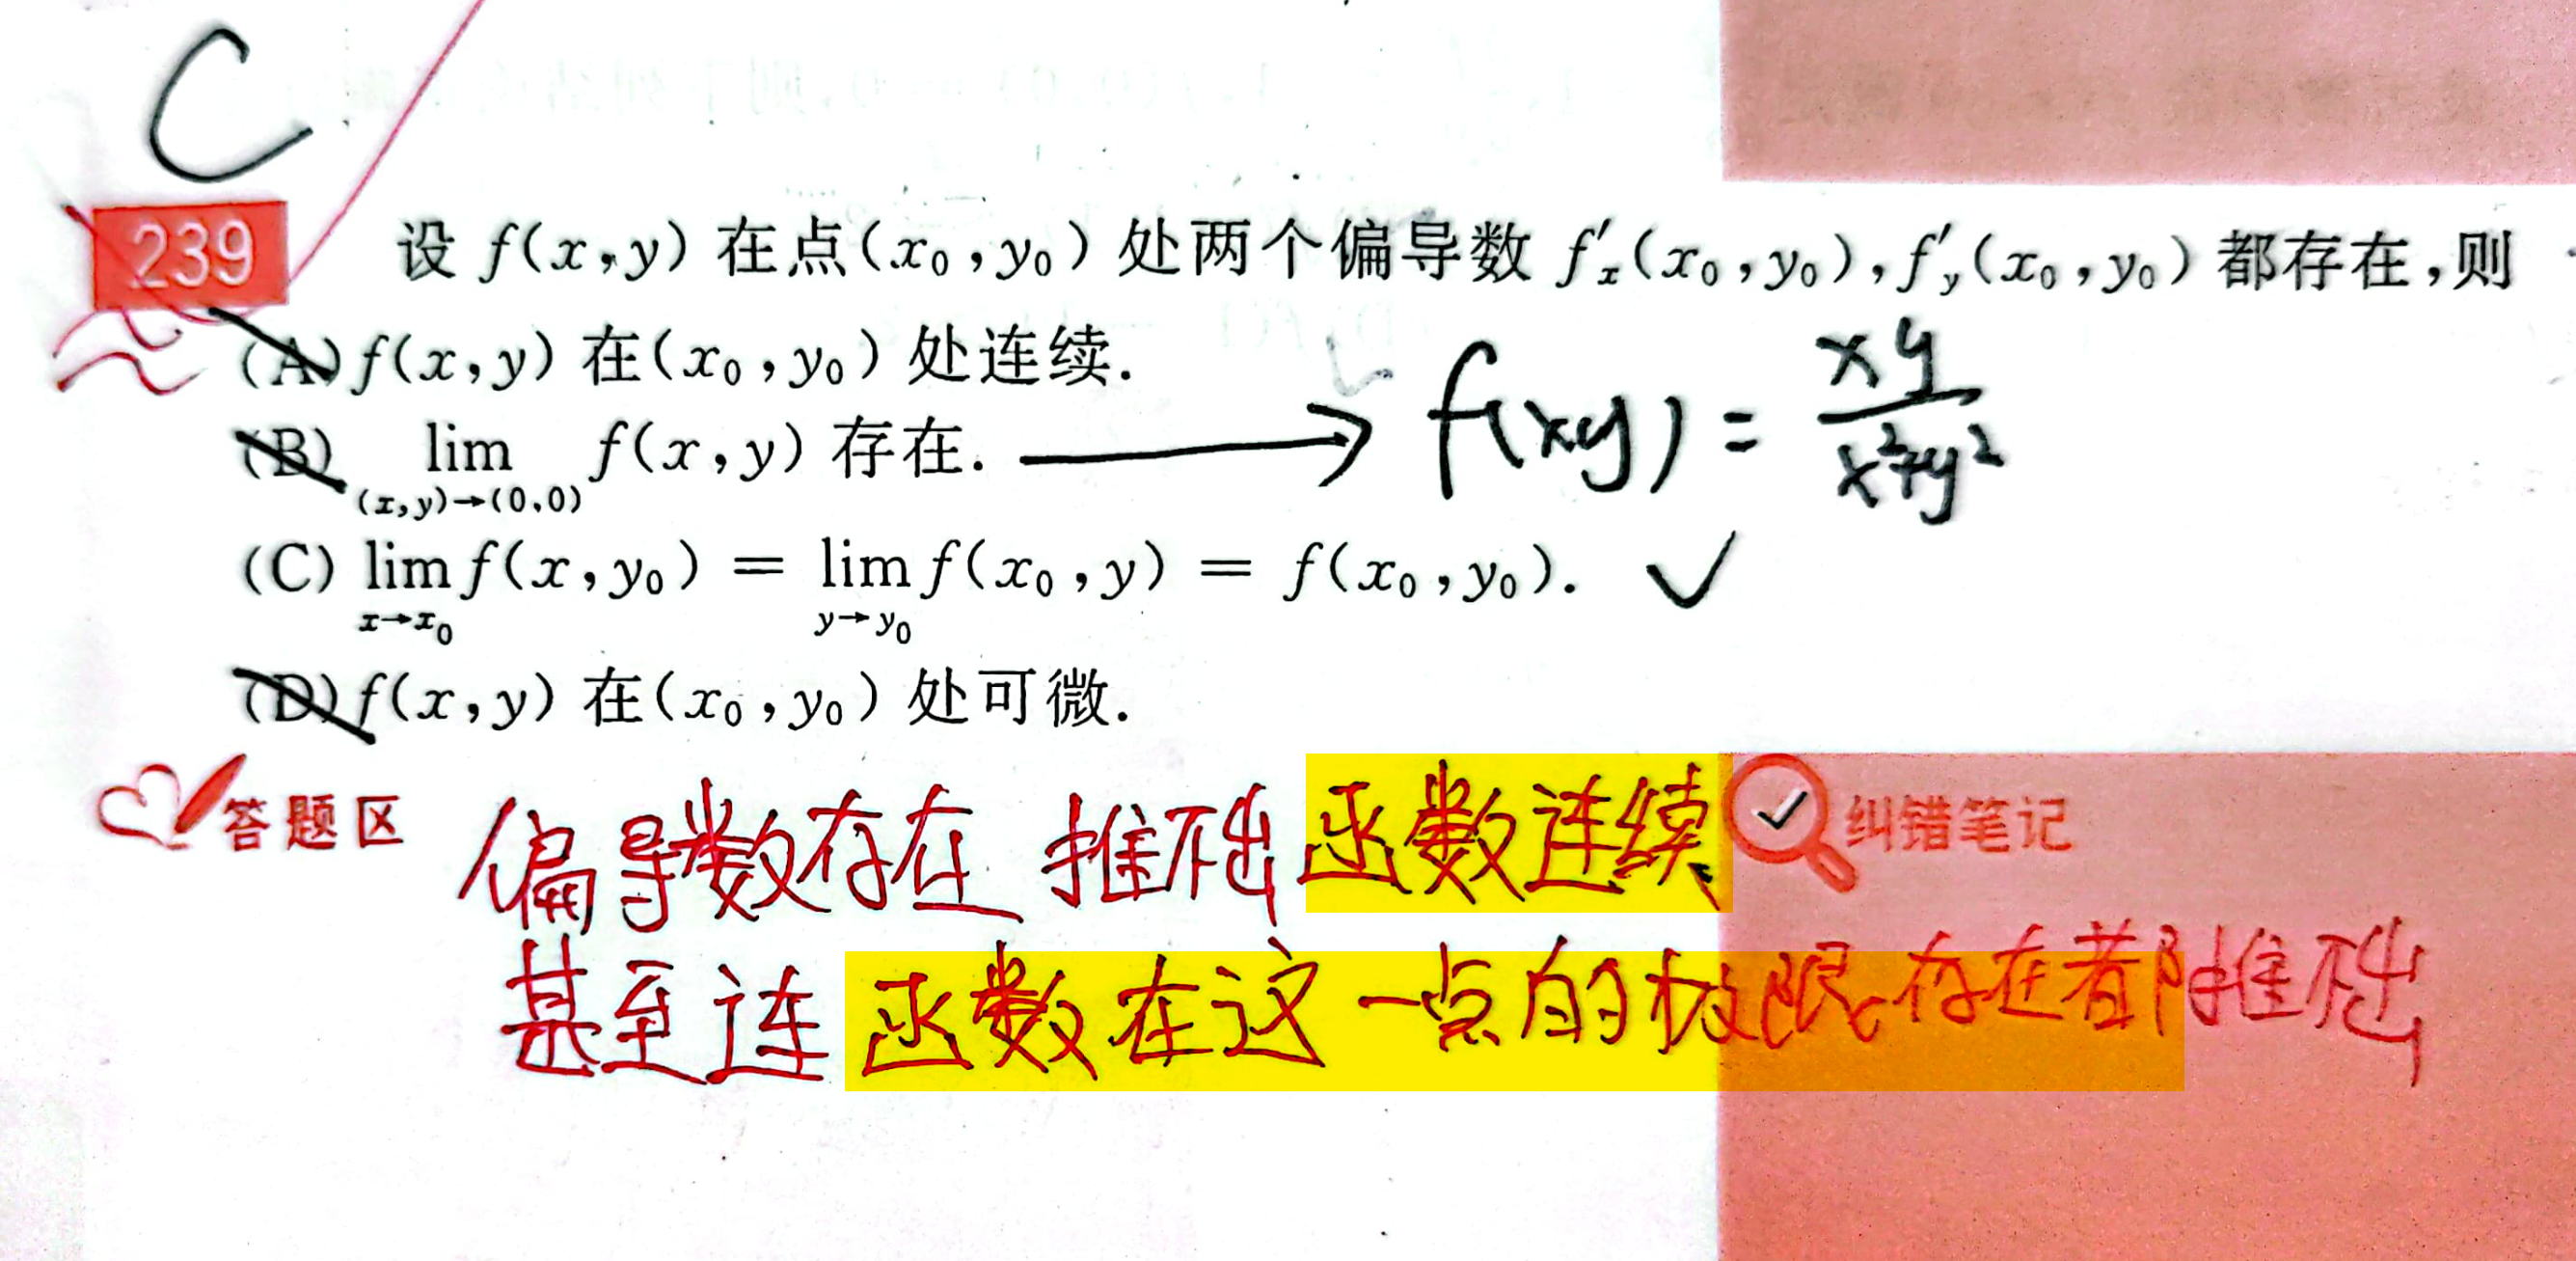 C
239 设 f(x,y) 在点(x₀,y₀) 处两个偏导数 f′ₓ(x₀,y₀),f′ᵧ(x₀,y₀) 都存在,则
(A) f(x,y) 在(x₀,y₀) 处连续.
(B) lim_{(x,y)→(0,0)} f(x,y) 存在. → f(xy) = xy/(x²+y²)
(C) lim_{x→x₀} f(x,y₀) = lim_{y→y₀} f(x₀,y) = f(x₀,y₀). ✓
(D) f(x,y) 在(x₀,y₀) 处可微.
答题区
纠错笔记
偏导数存在 推不出 函数连续
甚至连 函数在这一点的极限存在都推不出